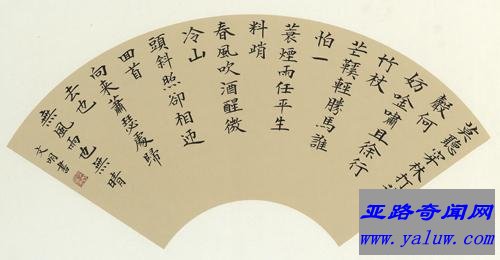 莫聽穿林打
聲何
妨唫嘯且徐行
竹杖
芒鞵輕勝馬誰
怕一
蓑煙雨任平生
料峭
春風吹酒醒微
冷山
頭斜照卻相迎
回首
向来蕭瑟處歸
去也
無風雨也無晴
文明書
亚路奇闻网
www.yaluw.com